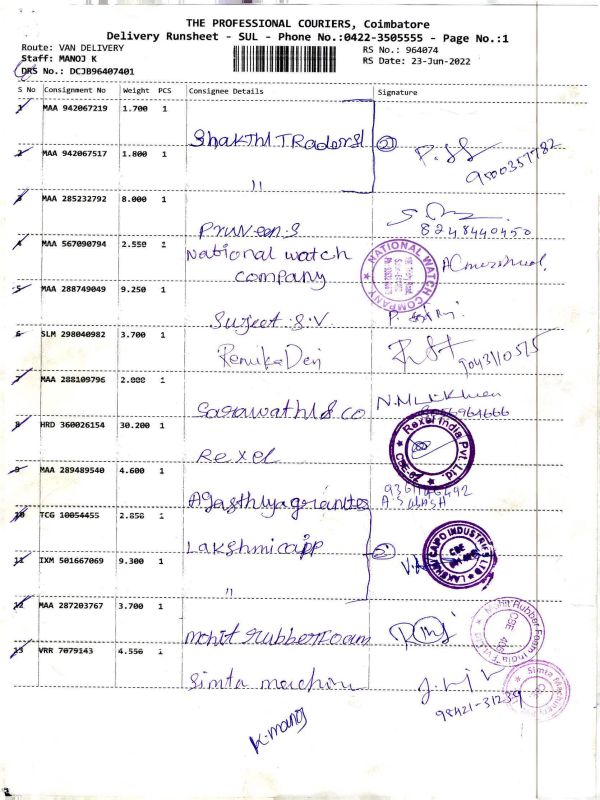 THE PROFESSIONAL COURIERS, Coimbatore
Delivery Runsheet - SUL - Phone No.:0422-3505555 - Page No.:1
Route: VAN DELIVERY
Staff: MANOJ K
DRS No.: DCJB96407401
RS No.: 964074
RS Date: 23-Jun-2022
S No Consignment No Weight PCS Consignee Details Signature
1 MAA 942067219 1.700 1
Shakthi Traders (2)
9500357782
2 MAA 942067517 1.800 1
"
3 MAA 285232792 8.000 1
Pruveen.S
8248440450
4 MAA 567090794 2.550 1
National watch company
NATIONAL WATCH COMPANY
5 MAA 288749049 9.250 1
Sujeet.S.V
6 SLM 298040982 3.700 1
Renuka Devi
9043110515
7 MAA 288109796 2.000 1
Saraswathi & co
8 HRD 360026154 30.200 1
Rexel
Rexel India Pvt. Ltd.
9 MAA 289489540 4.600 1
Agasthiya granites
10 TCG 10054455 2.850 1
Lakshmi capp
11 IXM 501667069 9.300 1
"
12 MAA 287203767 3.700 1
Mohit Rubber Foam
Mohit Rubber Foam India Pvt Ltd
13 VRR 7079143 4.550 1
Simta machin
98421-31239
K.manoj